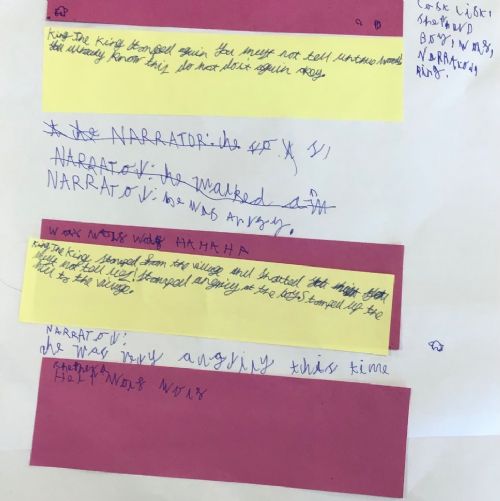 Cast List,
Shepherd
Boy, Wols,
NARRATOR,
King.
King The King stomped again You must not tell untrue words
You already know this do not do it again okay.
NARRATOR: he
NARRATOR: he marked a
NARRATOR: he was angry.
Wols Wols Wols HA HA HA HA
King The King stomped from the village and shouted You
must not tell lies! Stomped angrily at the boy Stomped up the
hill to the village.
NARRATOR:
he was very angriy this time
Shepherd
Help Wols Wols